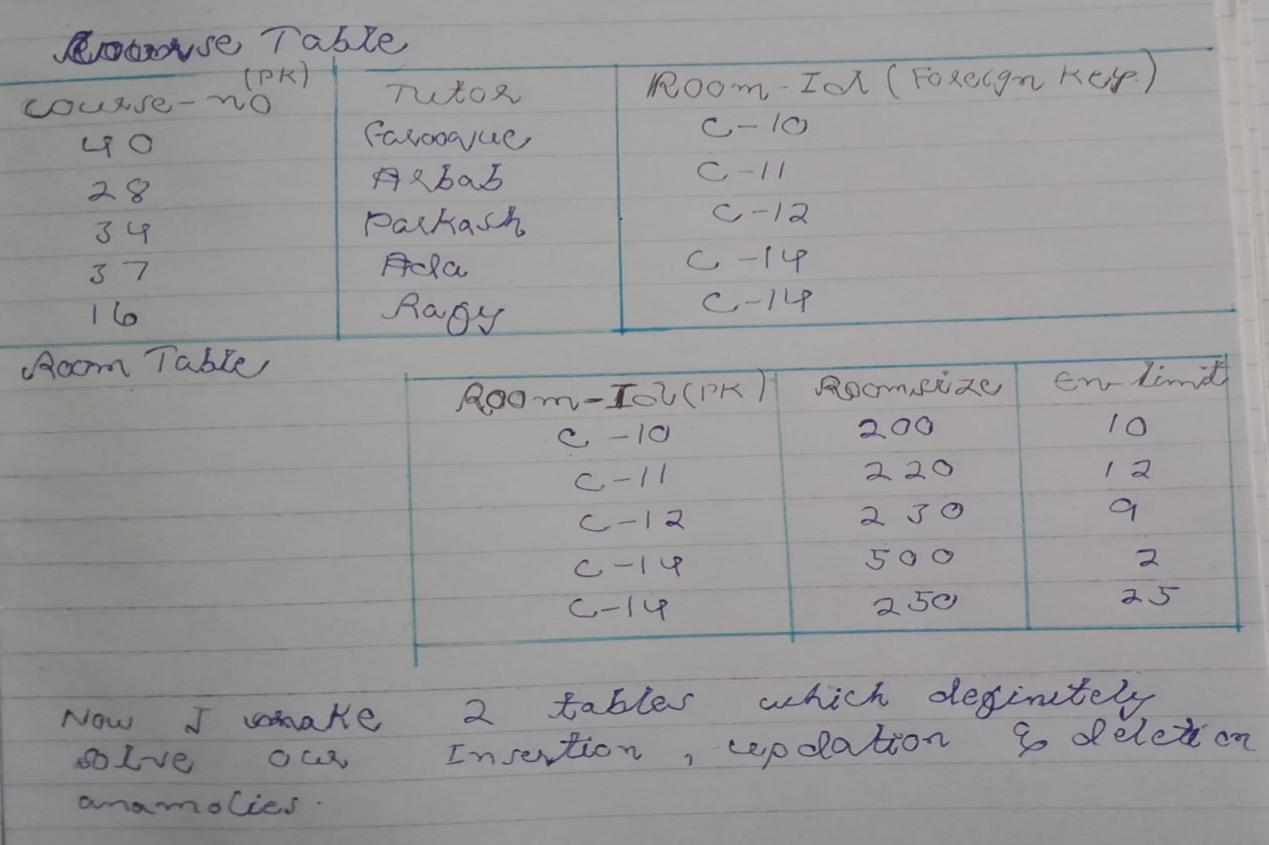 Course Table
Course-no (PK) Tutor Room-Id (Foreign Key.)
40 Farooque C-10
28 Arbab C-11
34 Parkash C-12
37 Ada C-14
16 C-14
Room Table
Room-Id (PK) Roomsize En-limit
C-10 200 10
C-11 220 12
C-12 230 9
C-14 500 2
C-14 250 25
Now I make 2 tables which definitely
solve our Insertion, updation & deletion
anamolies.